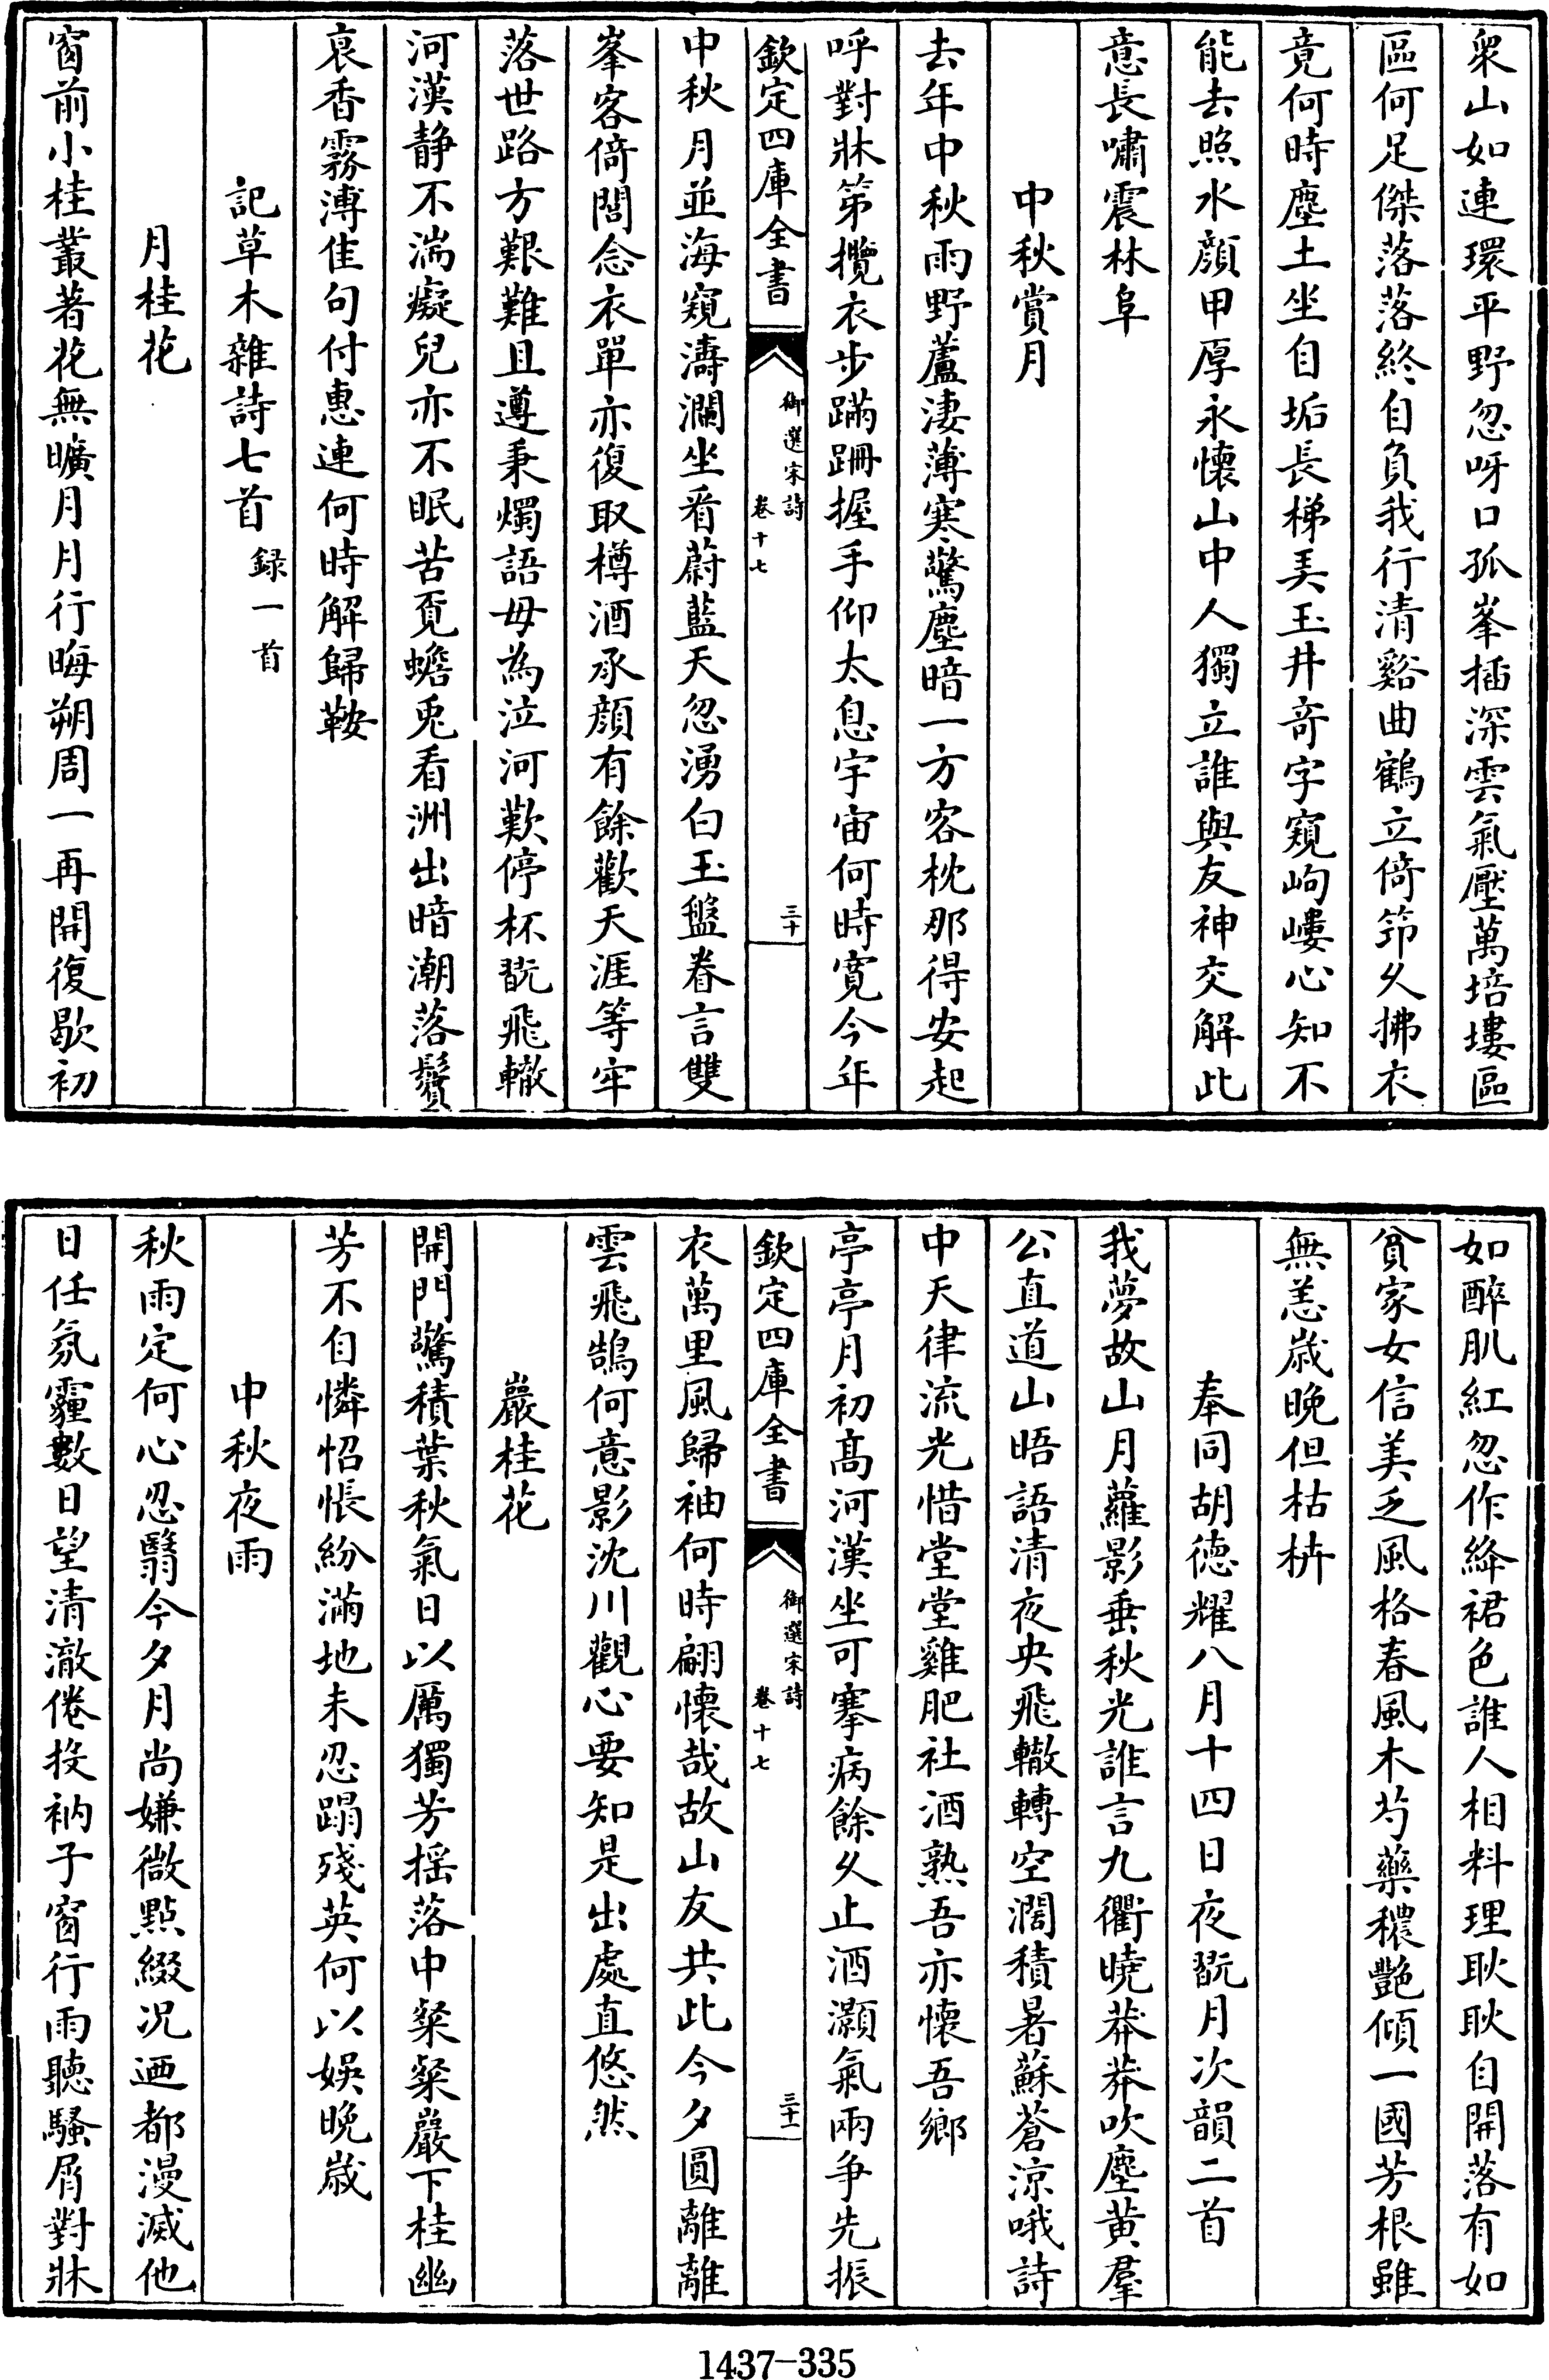 衆山如連環平野忽呀口孤峯插深雲氣壓萬培塿區
區何足傑落落終自負我行清谿曲鶴立倚笻久拂衣
竟何時塵土坐自垢長梯美玉井竒字窺岣嶁心知不
能去照水顔甲厚永懐山中人獨立誰與友神交解此
意長嘯震林阜
中秋賞月
去年中秋雨野蘆淒薄寒驚塵暗一方客枕那得安起
呼對牀第攬衣步蹣跚握手仰太息宇宙何時寛今年
欽定四庫全書
御選宋詩
卷十七
三十
中秋月並海窺濤瀾坐看蔚藍天忽湧白玉盤眷言雙
峯客倚閭念衣單亦復取樽酒承顔有餘歡天涯等牢
落世路方艱難且遵秉燭語毋為泣河歎停杯翫飛轍
河漢静不湍癡兒亦不眠苦覓蟾兎看洲出暗潮落鬢
哀香霧溥佳句付惠連何時解歸鞍
記草木雜詩七首録一首
月桂花
窗前小桂叢著花無曠月月行晦朔周一再開復歇初
如醉肌紅忽作絳裙色誰人相料理耿耿自開落有如
貧家女信美乏風格春風木芍藥穠艷傾一國芳根雖
無恙歳晚但枯枿
奉同胡徳耀八月十四日夜翫月次韻二首
我夢故山月蘿影垂秋光誰言九衢曉莽莽吹塵黄羣
公直道山晤語清夜央飛轍轉空濶積暑蘇蒼涼哦詩
中天律流光惜堂堂雞肥社酒熟吾亦懐吾鄉
亭亭月初髙河漢坐可搴病餘久止酒灝氣兩争先振
欽定四庫全書
御選宋詩
卷十七
三十一
衣萬里風歸袖何時翩懐哉故山友共此今夕圓離離
雲飛鵠何意影沈川觀心要知是出處直悠然
巖桂花
開門驚積葉秋氣日以厲獨芳揺落中粲粲巖下桂幽
芳不自憐怊悵紛滿地未忍蹋殘英何以娱晚歳
中秋夜雨
秋雨定何心忍翳今夕月尚嫌微點綴况迺都漫滅他
日任氛霾數日望清澈倦投衲子窗行雨聽騷屑對牀
1437-335